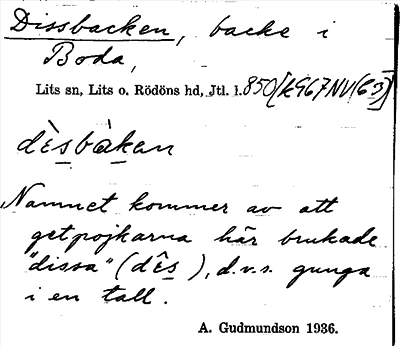 Dissbacken, backe i
Boda,
Lits sn, Lits o. Rödöns hd, Jtl. l. 850[k967NV(63)]
dɛ̀sbàkan
Namnet kommer av att
getpojkarna här brukade
"dissa" (dɛ̂s), d.v.s. gunga
i en tall.
A. Gudmundson 1936.